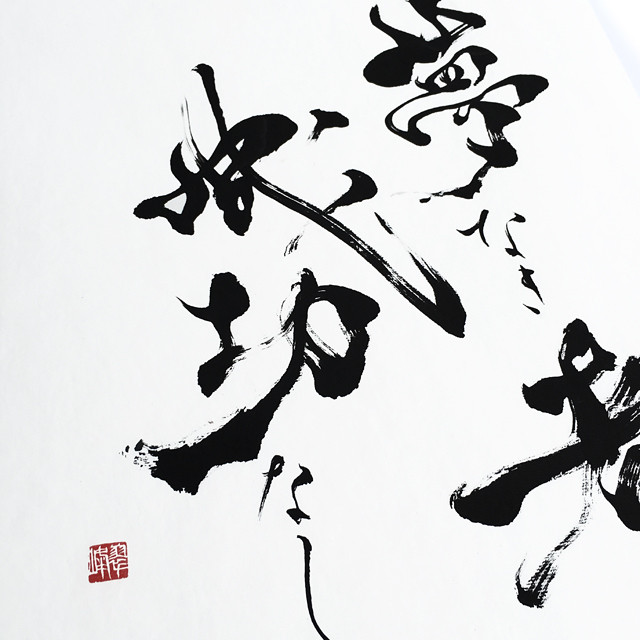 夢なき者
成功なし
翠嵐